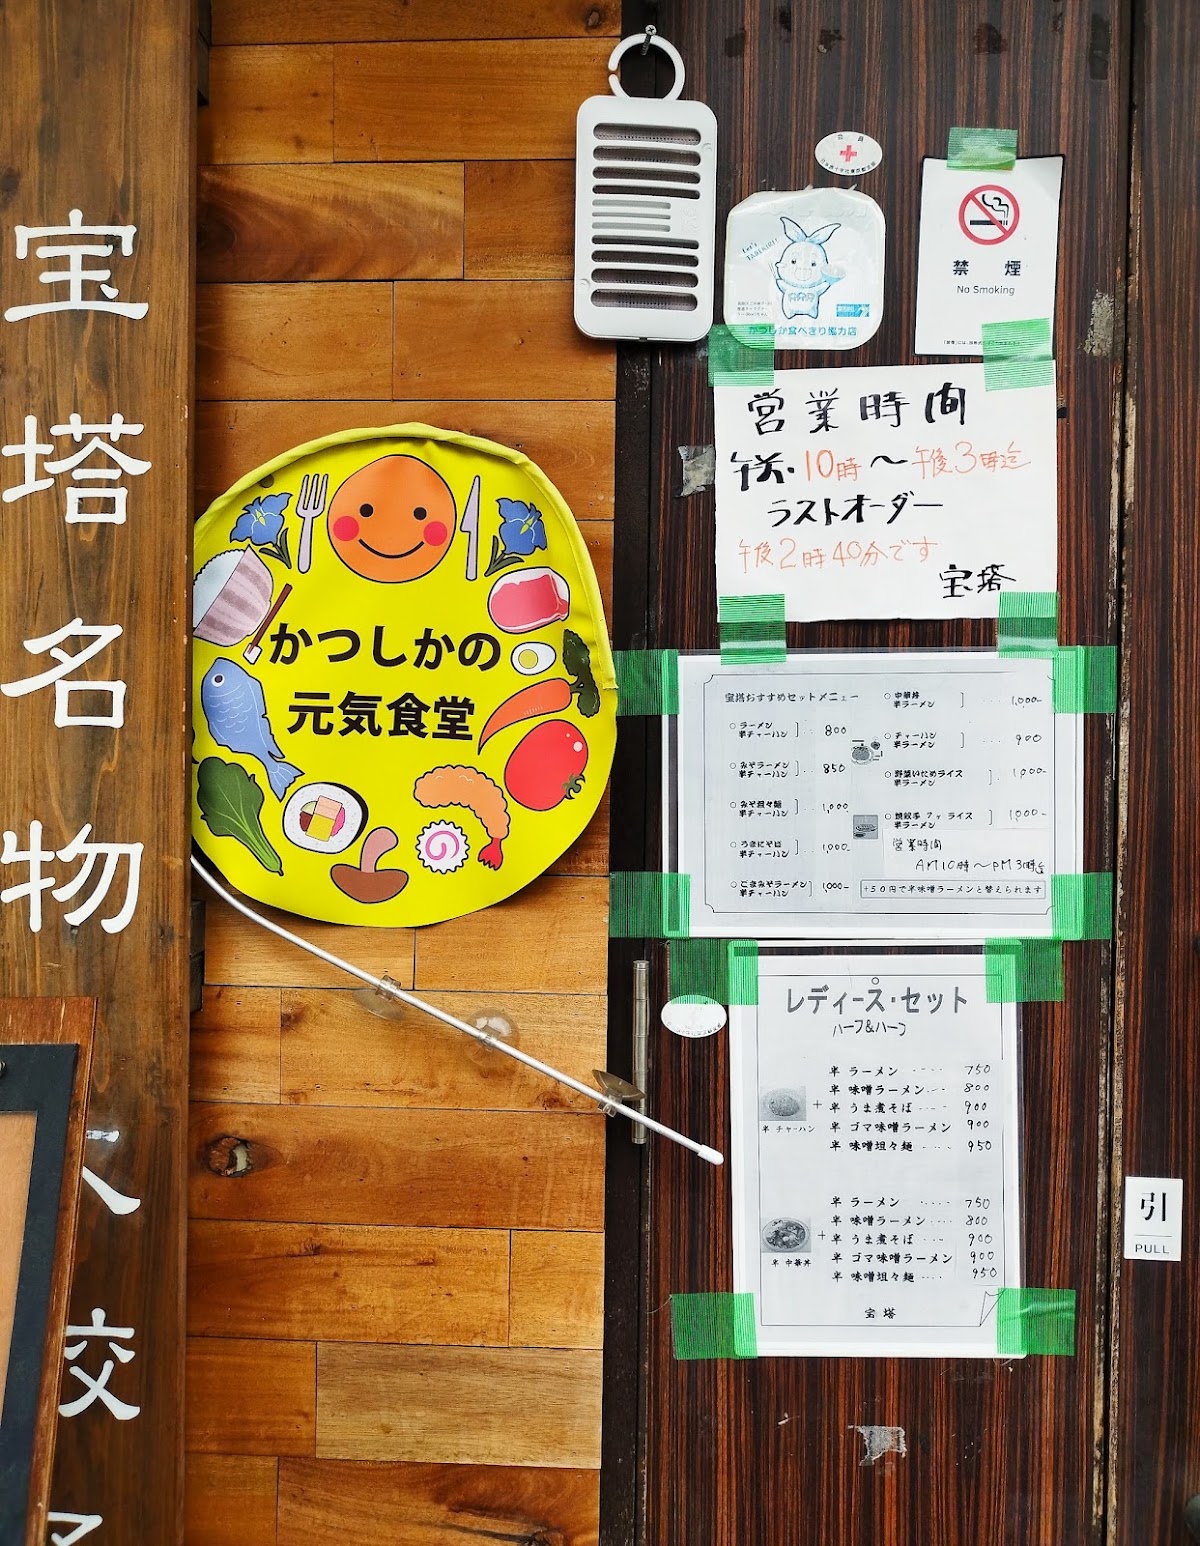 宝塔名物
人
餃
会員
Let's
TABEKIRI!
かつしか食べきり協力店
禁煙
No Smoking
営業時間
午前・10時〜午後3時迄
ラストオーダー
午後2時40分です
宝塔
かつしかの
元気食堂
宝塔おすすめセットメニュー
○ラーメン
半チャーハン ]‥ 800
○みそラーメン
半チャーハン ]‥ 850
○みそ坦々麺
半チャーハン ]‥ 1,000
○うまにそば
半チャーハン ]‥ 1,000-
○ごまみそラーメン
半チャーハン ] 1,000-
○中華丼
半ラーメン ] ‥‥ 1,000-
○チャーハン
半ラーメン ] ‥‥ 900
○野菜いためライス
半ラーメン ]‥ 1,000-
ライス
半ラーメン ] ‥‥ 1,000-
営業時間
AM10時〜PM3時迄
+50円で半味噌ラーメンと替えられます
レディース・セット
ハーフ&ハーフ
半 ラーメン ‥‥ 750
半 味噌ラーメン‥‥ 800
半 チャーハン + 半 うま煮そば ‥‥ 900
半 ゴマ味噌ラーメン 900
半 味噌坦々麺 ‥‥ 950
半 ラーメン ‥‥ 750
半 味噌ラーメン‥‥ 800
半 中華丼 + 半 うま煮そば‥‥ 900
半 ゴマ味噌ラーメン 900
半 味噌坦々麺 ‥‥ 950
宝塔
引
PULL